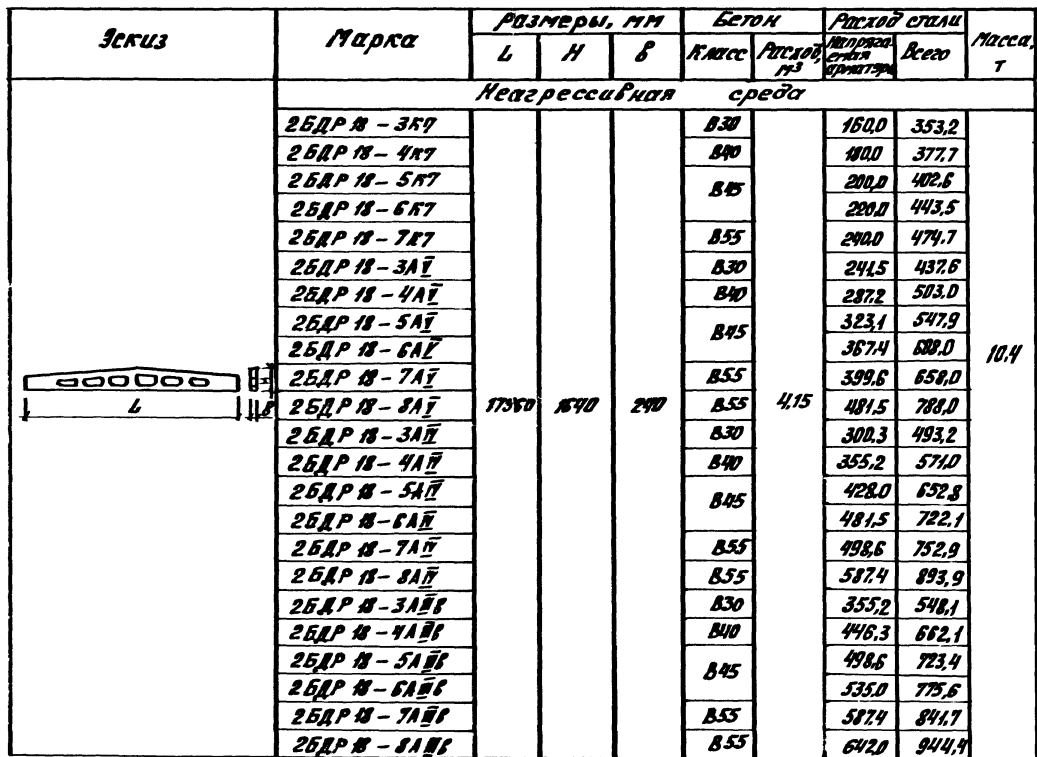 Эскиз Марка Размеры, мм Бетон Расход стали Масса, т
L H в Класс Расход, м3 Напрягаемая арматура Всего
Неагрессивная среда
2БДР 18 - 3К7 В30 160,0 353,2
2БДР 18 - 4К7 В40 180,0 377,7
2БДР 18 - 5К7 В45 200,0 402,6
2БДР 18 - 6К7 220,0 443,5
2БДР 18 - 7К7 В55 240,0 474,7
2БДР 18 - 3АV В30 241,5 437,6
2БДР 18 - 4АV В40 287,2 503,0
2БДР 18 - 5АV В45 323,1 547,9
2БДР 18 - 6АV 367,4 688,0 10,4
2БДР 18 - 7АV В55 399,6 658,0
L в H
2БДР 18 - 8АV 17960 1640 240 В55 4,15 481,5 788,0
2БДР 18 - 3АIV В30 300,3 493,2
2БДР 18 - 4АIV В40 355,2 571,0
2БДР 18 - 5АIV В45 428,0 652,8
2БДР 18 - 6АIV 481,5 722,1
2БДР 18 - 7АIV В55 498,6 752,9
2БДР 18 - 8АIV В55 587,4 893,9
2БДР 18 - 3АIIIв В30 355,2 548,1
2БДР 18 - 4АIIIв В40 446,3 662,1
2БДР 18 - 5АIIIв В45 498,6 723,4
2БДР 18 - 6АIIIв 535,0 775,6
2БДР 18 - 7АIIIв В55 587,4 841,7
2БДР 18 - 8АIIIв В55 642,0 944,4